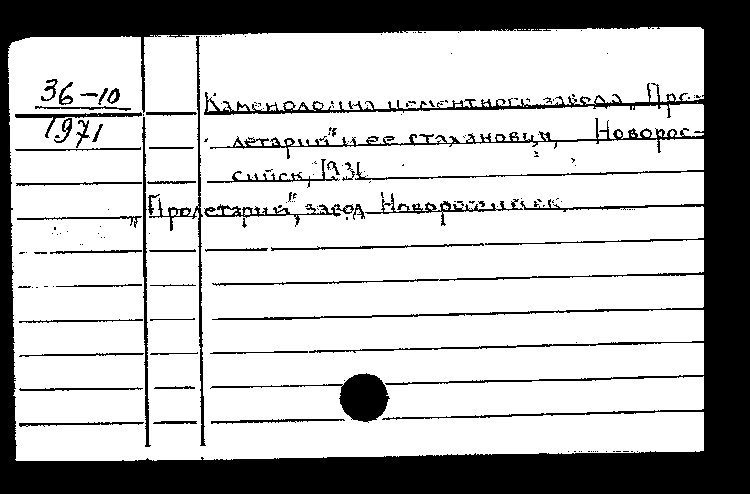 36-10
1971
Каменоломна цементного завода „Про-
летарий" и ее стахановцы, Новорос-
сийск, 1936
„Пролетарий", завод Новороссийск.